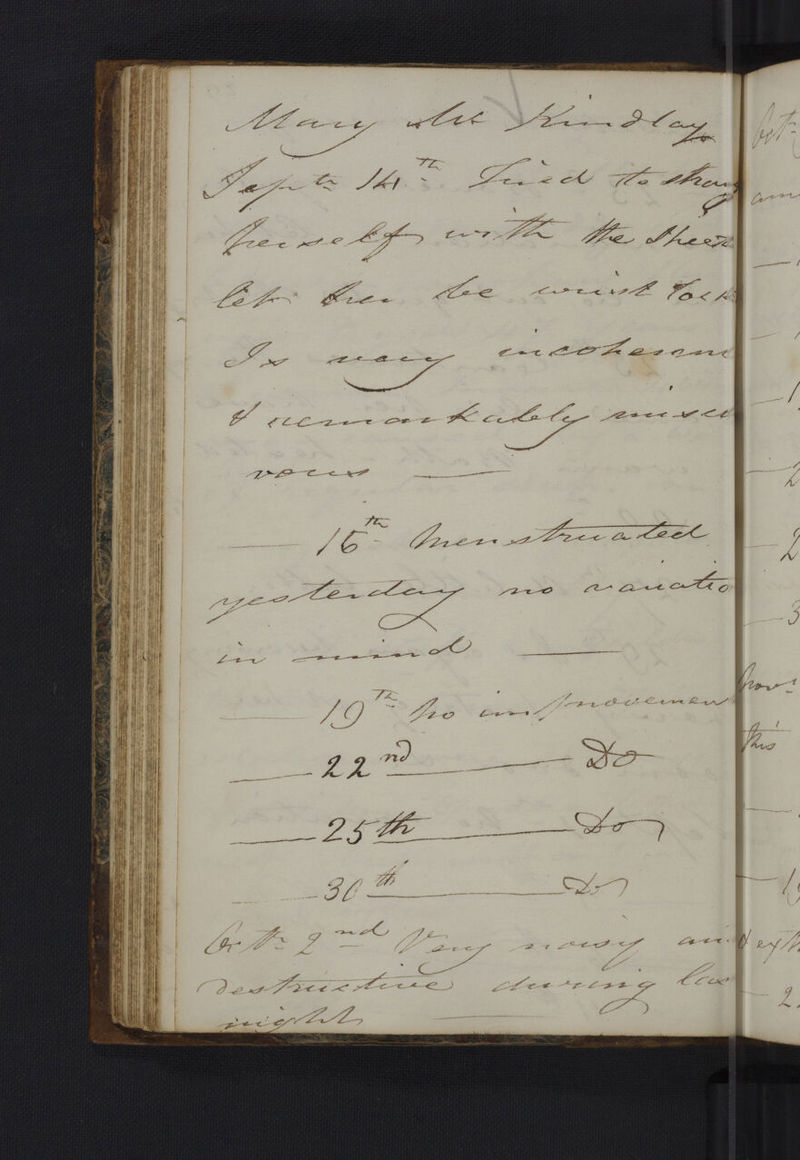 Mary Mc Kindlay
Septr 14th Tried to strang
herself with the sheet
let her be wrist lock
Is very incoherent
& remarkably misch
vous —
— 16th Menstruated
yesterday no variatio
in mind —
— 19th No improvemen
— 22nd — Do
— 25th — Do
— 30th — Do
Octr 2nd Very noisy an
destructive during las
night —
Octr
am
Novr
this
& ext